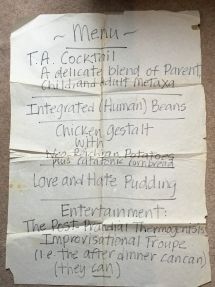 ~ Menu ~
T.A. Cocktail
A delicate blend of Parent,
Child and Adult Metaxa
Integrated (Human) Beans
Chicken gestalt
with
Neo-Reichian Potatoes
plus catatonic cornbread
Love and Hate Pudding
Entertainment:
The Post Prandial Thermogenists
Improvisational Troupe
(i.e. the after dinner cancan)
(they can)